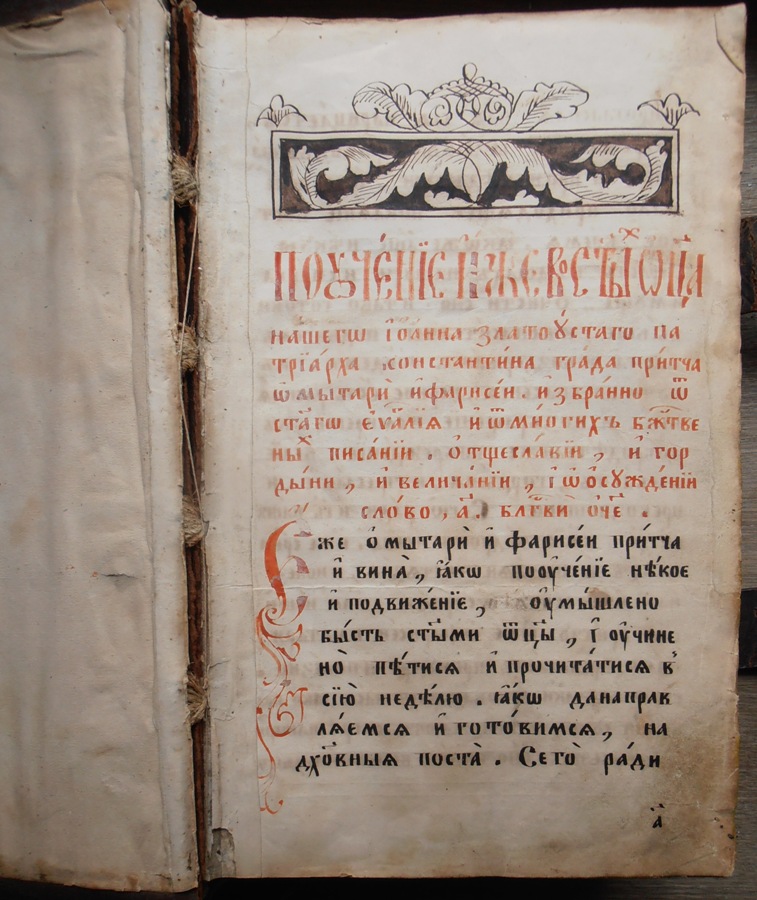 поꙋче́нїе и́же во ст҃ы́хъ ѻ҆ц҃а̀
на́шегѡ і҆ѡа́нна златоу́стаго па
трїа́рха константи́на гра́да при́тча
ѡ҆ мытарѝ и҆ фарисе́и . и҆збра́нно ѿ
ст҃а́гѡ є҆ѵа́лїѧ и҆ ѿ мно́гихъ бж҃тве
ны́х писа́нїи . ѻ҆ тщесла́вїи , и҆ гор
ды́ни , и҆ велича́нїи , і҆ ѡ҆ ѻ҆сꙋжде́нїй
сло́во , а҃ . бл҃гвѝ ѻ҆́ч҃е .
Є҆́же ѻ҆ мытарѝ и҆ фарисе́и при́тча
и҆ вина̀ , ꙗ҆́кѡ поꙋче́нїе нѣ́кое
и҆ подвиже́нїе , оу҆мы́шлено
бы́сть ст҃ы́ми ѻ҆ц҃ы̑ , і҆ оу҆чине
но̀ пѣ́тисѧ и҆ прочита́тисѧ в̾
сїю̀ недѣ́лю . ꙗ҆́кѡ да напрaв
лѧ́емсѧ и҆ гото́вимсѧ , на
дх҃о́вныѧ поста̀ . Сего̀ ра́ди
а҃